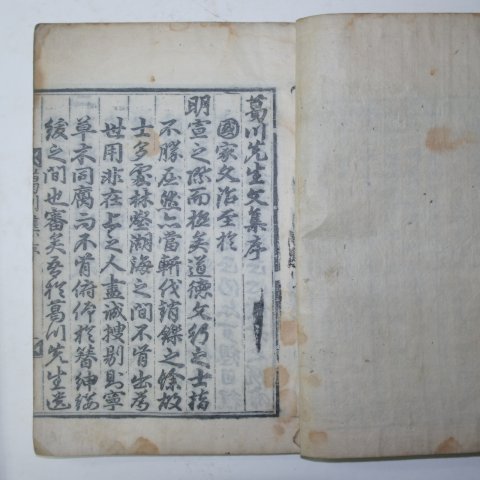 葛川先生文集序
國家文治至於
明宣之際而極矣道德文行之士指
不勝屈然亦當斬伐銷鑠之餘故
士多處林壑湖海之間不肯出爲
世用非在上之人盡誠搜剔則寧
草木同腐而不肯俯仰於簪紳綬
緩之間也審矣吾於葛川先生遺
葛川集序